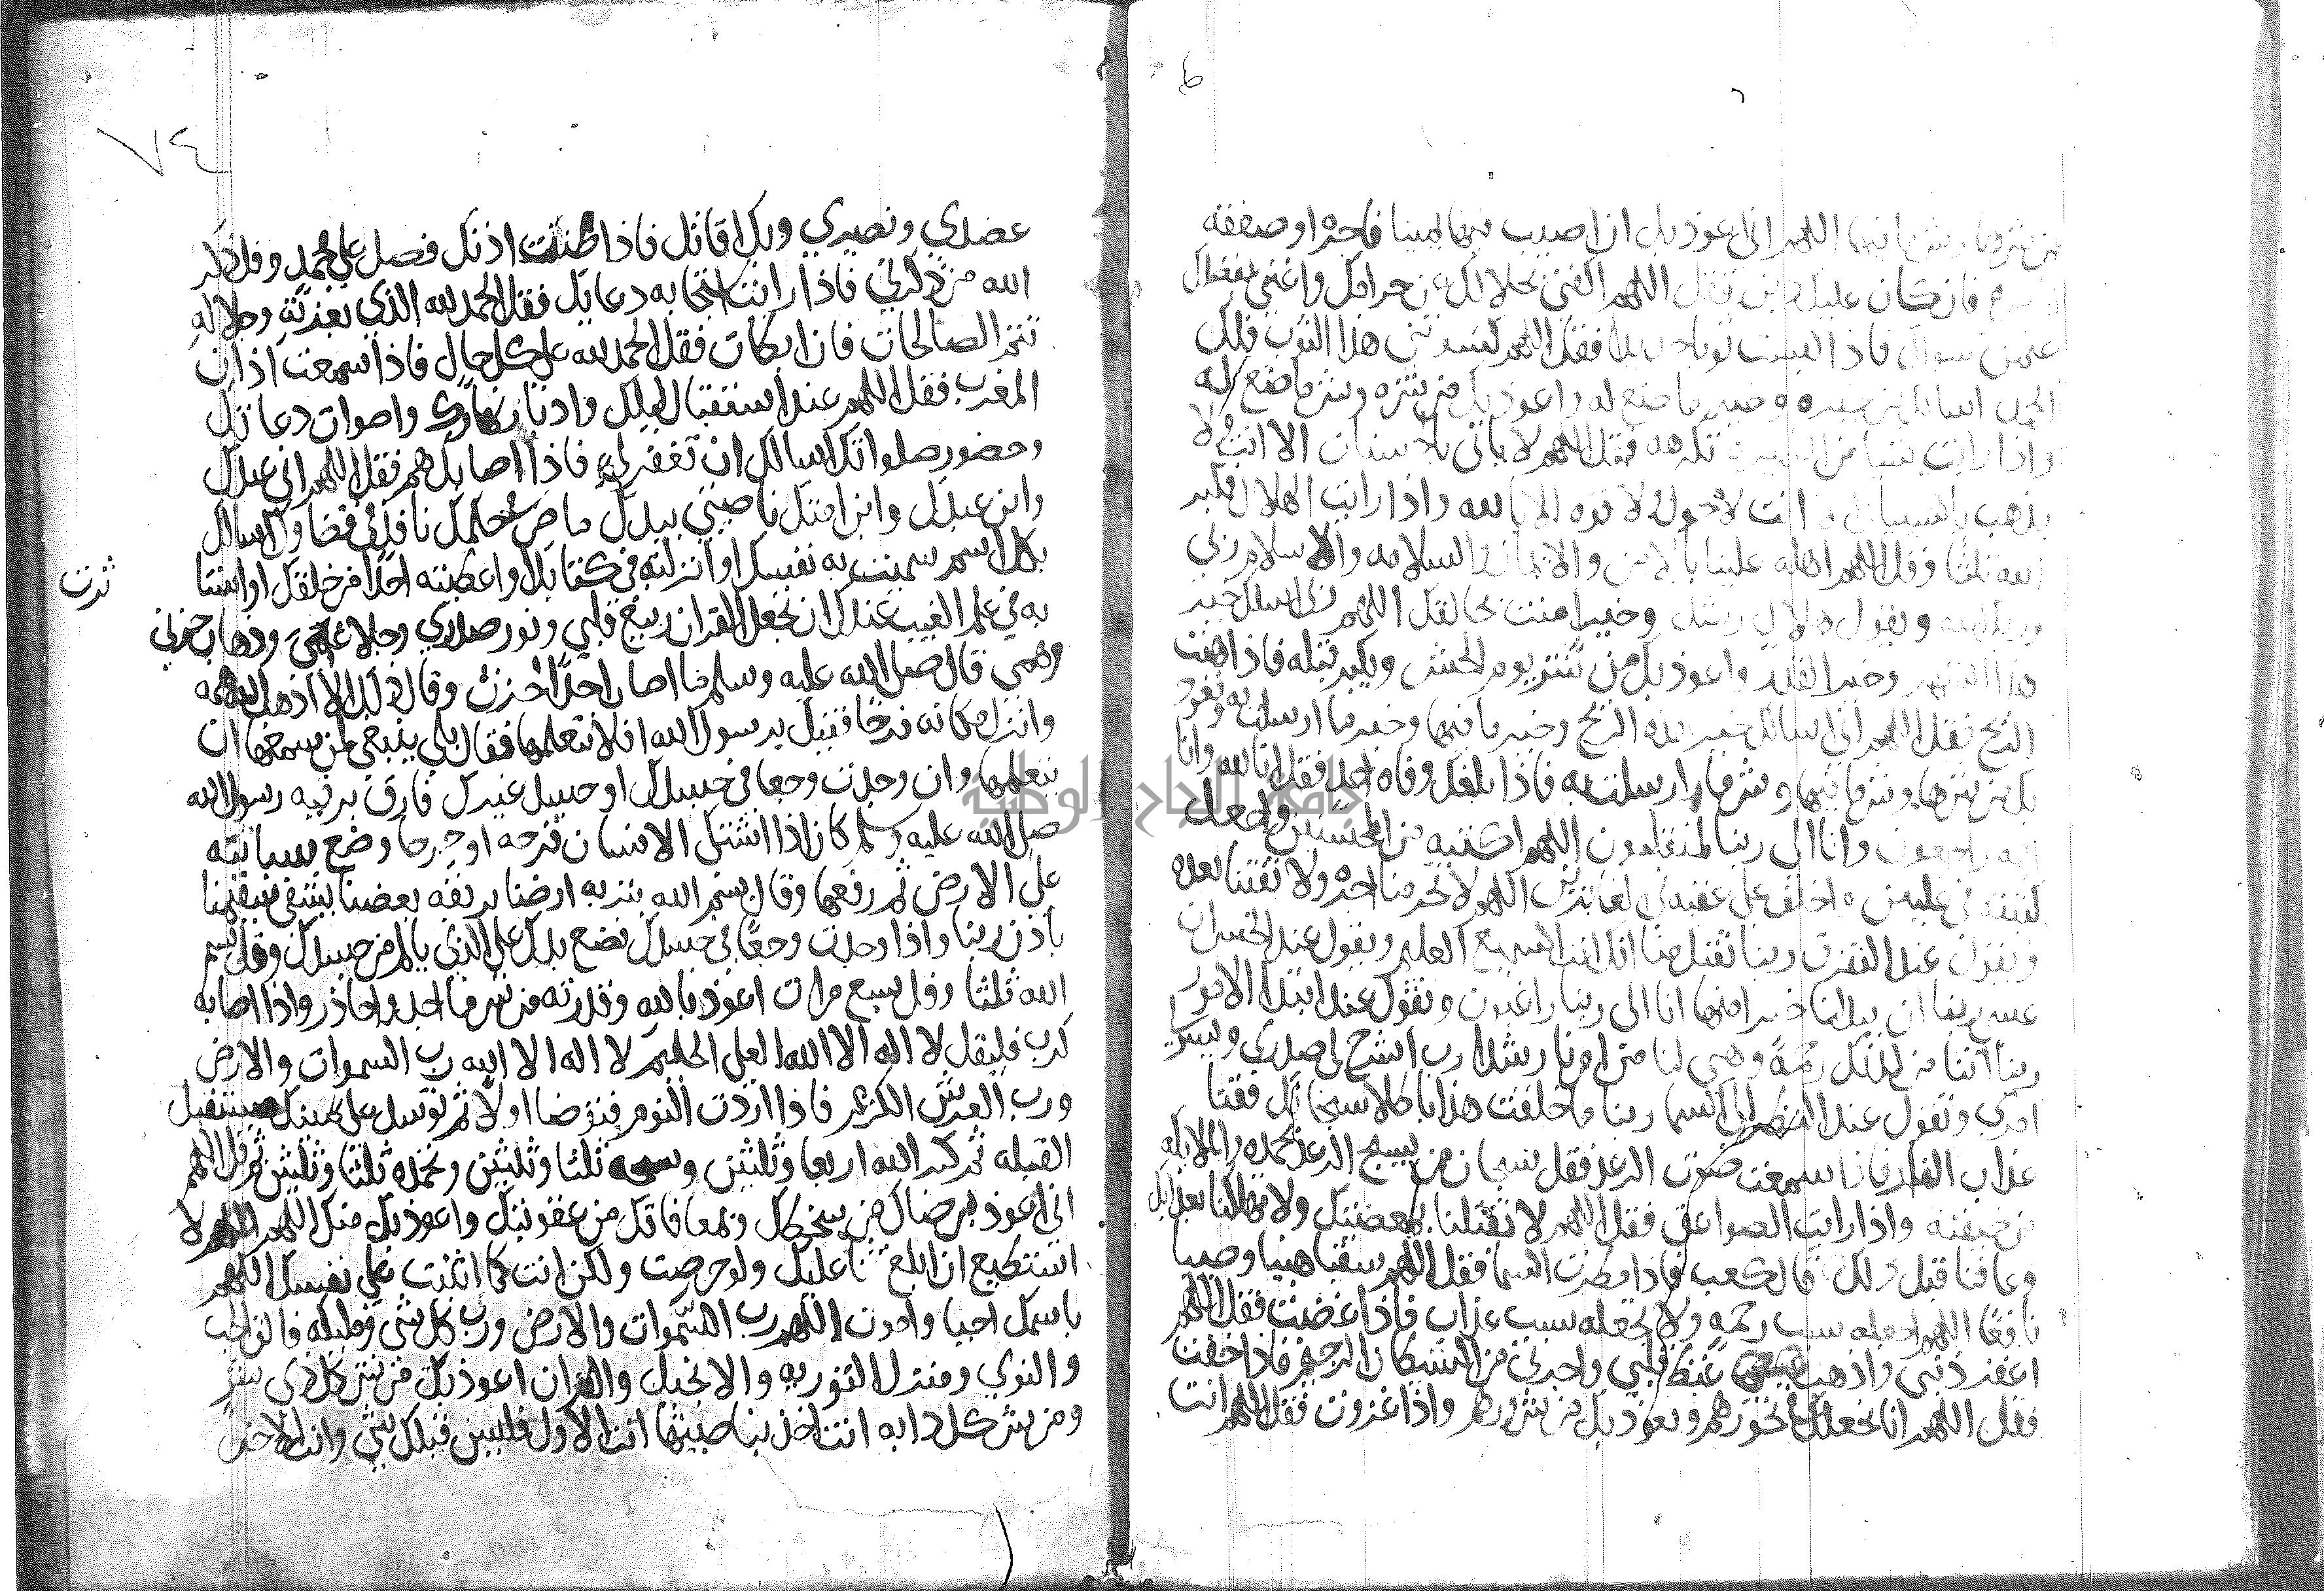 شرها وشر ما فيها اللهم اني اعوذ بك ان اصيب فيها يمينا فاجره او صفقه
فان كان عليك دين فقل اللهم اكفني بحلالك عن حرامك واغنني بفضلك
عمن سواك فاذا لبست ثوبا جديدا فقل اللهم كسوتني هذا الثوب فلك
الحمد اسالك من خيره وخير ما صنع له واعوذ بك من شره وشر ما صنع له
واذا رايت شيا من الطيره تكرهه فقل اللهم لا ياتي بالحسنات الا انت ولا
يذهب بالسيات الا انت لا حول ولا قوه الا بالله واذا رايت الهلال فكبر
الله ثلثا وقل اللهم اهله علينا بالامن والايمان والسلامه والاسلام ربي
وربك الله ويقول هلال رشد وخير امنت بخالقك اللهم اني اسالك خير
هذا الشهر وخير القدر واعوذ بك من شر يوم الحشر ويكبر قبله فاذا هبت
الريح فقل اللهم اني اسالك خير هذه الريح وخير ما فيها وخير ما ارسلت به ونعوذ
بك من شرها وشر ما فيها وشر ما ارسلت به فاذا بلغك وفاه احد فقل انا لله وانا
اليه راجعون وانا الي ربنا لمنقلبون اللهم اكتبه من المحسنين واجعل
كتبه في عليين واخلف على عقبه في الغابرين اللهم لا تحرمنا اجره ولا تفتنا بعده
ويقول عند التصدق ربنا تقبل منا انك انت السميع العليم ويقول عند الخسران
عسى ربنا ان يبدلنا خيرا منها انا الى ربنا راغبون وتقول عند ابتدا الامور
ربنا اتنا من لدنك رحمة وهيي لنا من امرنا رشدا رب اشرح لي صدري ويسر لي
امري وتقول عند النظر الي السما ربنا ما خلقت هذا باطلا سبحانك فقنا
عذاب النار فاذا سمعت صوت الرعد فقل سبحان من يسبح الرعد بحمده والملايكه
من خيفته واذا رايت الصواعق فقل اللهم لا تقتلنا بغضبك ولا تهلكنا بعذابك
وعافنا قبل ذلك قاله كعب فاذا مطرت السما فقل اللهم سقيا هنيا وصيبا
نافعا اللهم اجعله سبب رحمه ولا تجعله سبب عذاب فاذا غضبت فقل اللهم
اغفر ذنبي واذهب غيظ قلبي واجرني من الشيطان الرجيم فاذا خفت
فقل اللهم انا نجعلك في نحورهم ونعوذ بك من شرورهم واذا غزوت فقل اللهم انت
٧٤
عضدي ونصيري وبك اقاتل فاذا طنت اذنك فصل علي محمد وقل ذكر
الله من ذكرني فاذا رايت استجابه دعايك فقل الحمد لله الذي بعزته وجلاله
تتم الصالحات فان ابطات فقل الحمد لله على كل حال فاذا سمعت اذان
المغرب فقل اللهم عند استقبال ليلك وادبار نهارك واصوات دعاتك
وحضور صلواتك اسالك ان تغفر لي فاذا اصابك هم فقل اللهم اني عبدك
وابن عبدك وابن امتك ناصيتي بيدك ماض في حكمك نافذ في قضاوك اسالك
بكل اسم سميت به نفسك او انزلته في كتابك او اعطيته احدا من خلقك او استا
ثرت
به في علم الغيب عندك ان تجعل القران ربيع قلبي ونور صدري وجلا غمي وذهاب حزني
وهمي قال صلى الله عليه وسلم ما اصاب احدا حزن وقال ذلك الا اذهب الله همه
وانزل مكانه فرحا فقيل يرسول الله افلا نتعلمها فقال بلي ينبغي لمن سمعها ان
يتعلمها وان وجدت وجعا في جسدك او جسد غيرك فارق برقيه رسول الله
صلى الله عليه وسلم كان اذا اشتكى الانسان قرحه او جرحا وضع سبابته
على الارض ثم رفعها وقال بسم الله تربه ارضنا بريقه بعضنا يشفى سقيمنا
باذن ربنا واذا وجدت وجعا في جسدك فضع يدك على الذي يالم من جسدك وقل بسم
الله ثلثا وقل سبع مرات اعوذ بالله وقدرته من شر ما اجد واحاذر واذا اصابه
كرب فليقل لا اله الا الله العلي الحليم لا اله الا الله رب السموات والارض
ورب العرش الكريم فاذا اردت النوم فتوضا اولا ثم توسد على يمينك مستقبل
القبله ثم كبر الله اربعا وثلثين وسبحه ثلثا وثلثين وتحمده ثلثا وثلثين ثم قل اللهم
اني اعوذ برضاك من سخطك وبمعافاتك من عقوبتك واعوذ بك منك اللهم لا
استطيع ان ابلغ ثنا عليك ولو حرصت ولكن انت كما اثنيت على نفسك اللهم
باسمك احيا واموت اللهم رب السموات والارض ورب كل شي ومليكه فالق الحب
والنوي ومنزل التوريه والانجيل والقران اعوذ بك من شر كل ذي شر
ومن شر كل دابه انت اخذ بناصيتها انت الاول فليس قبلك شي وانت الاخر
جامعة النجاح الوطنية